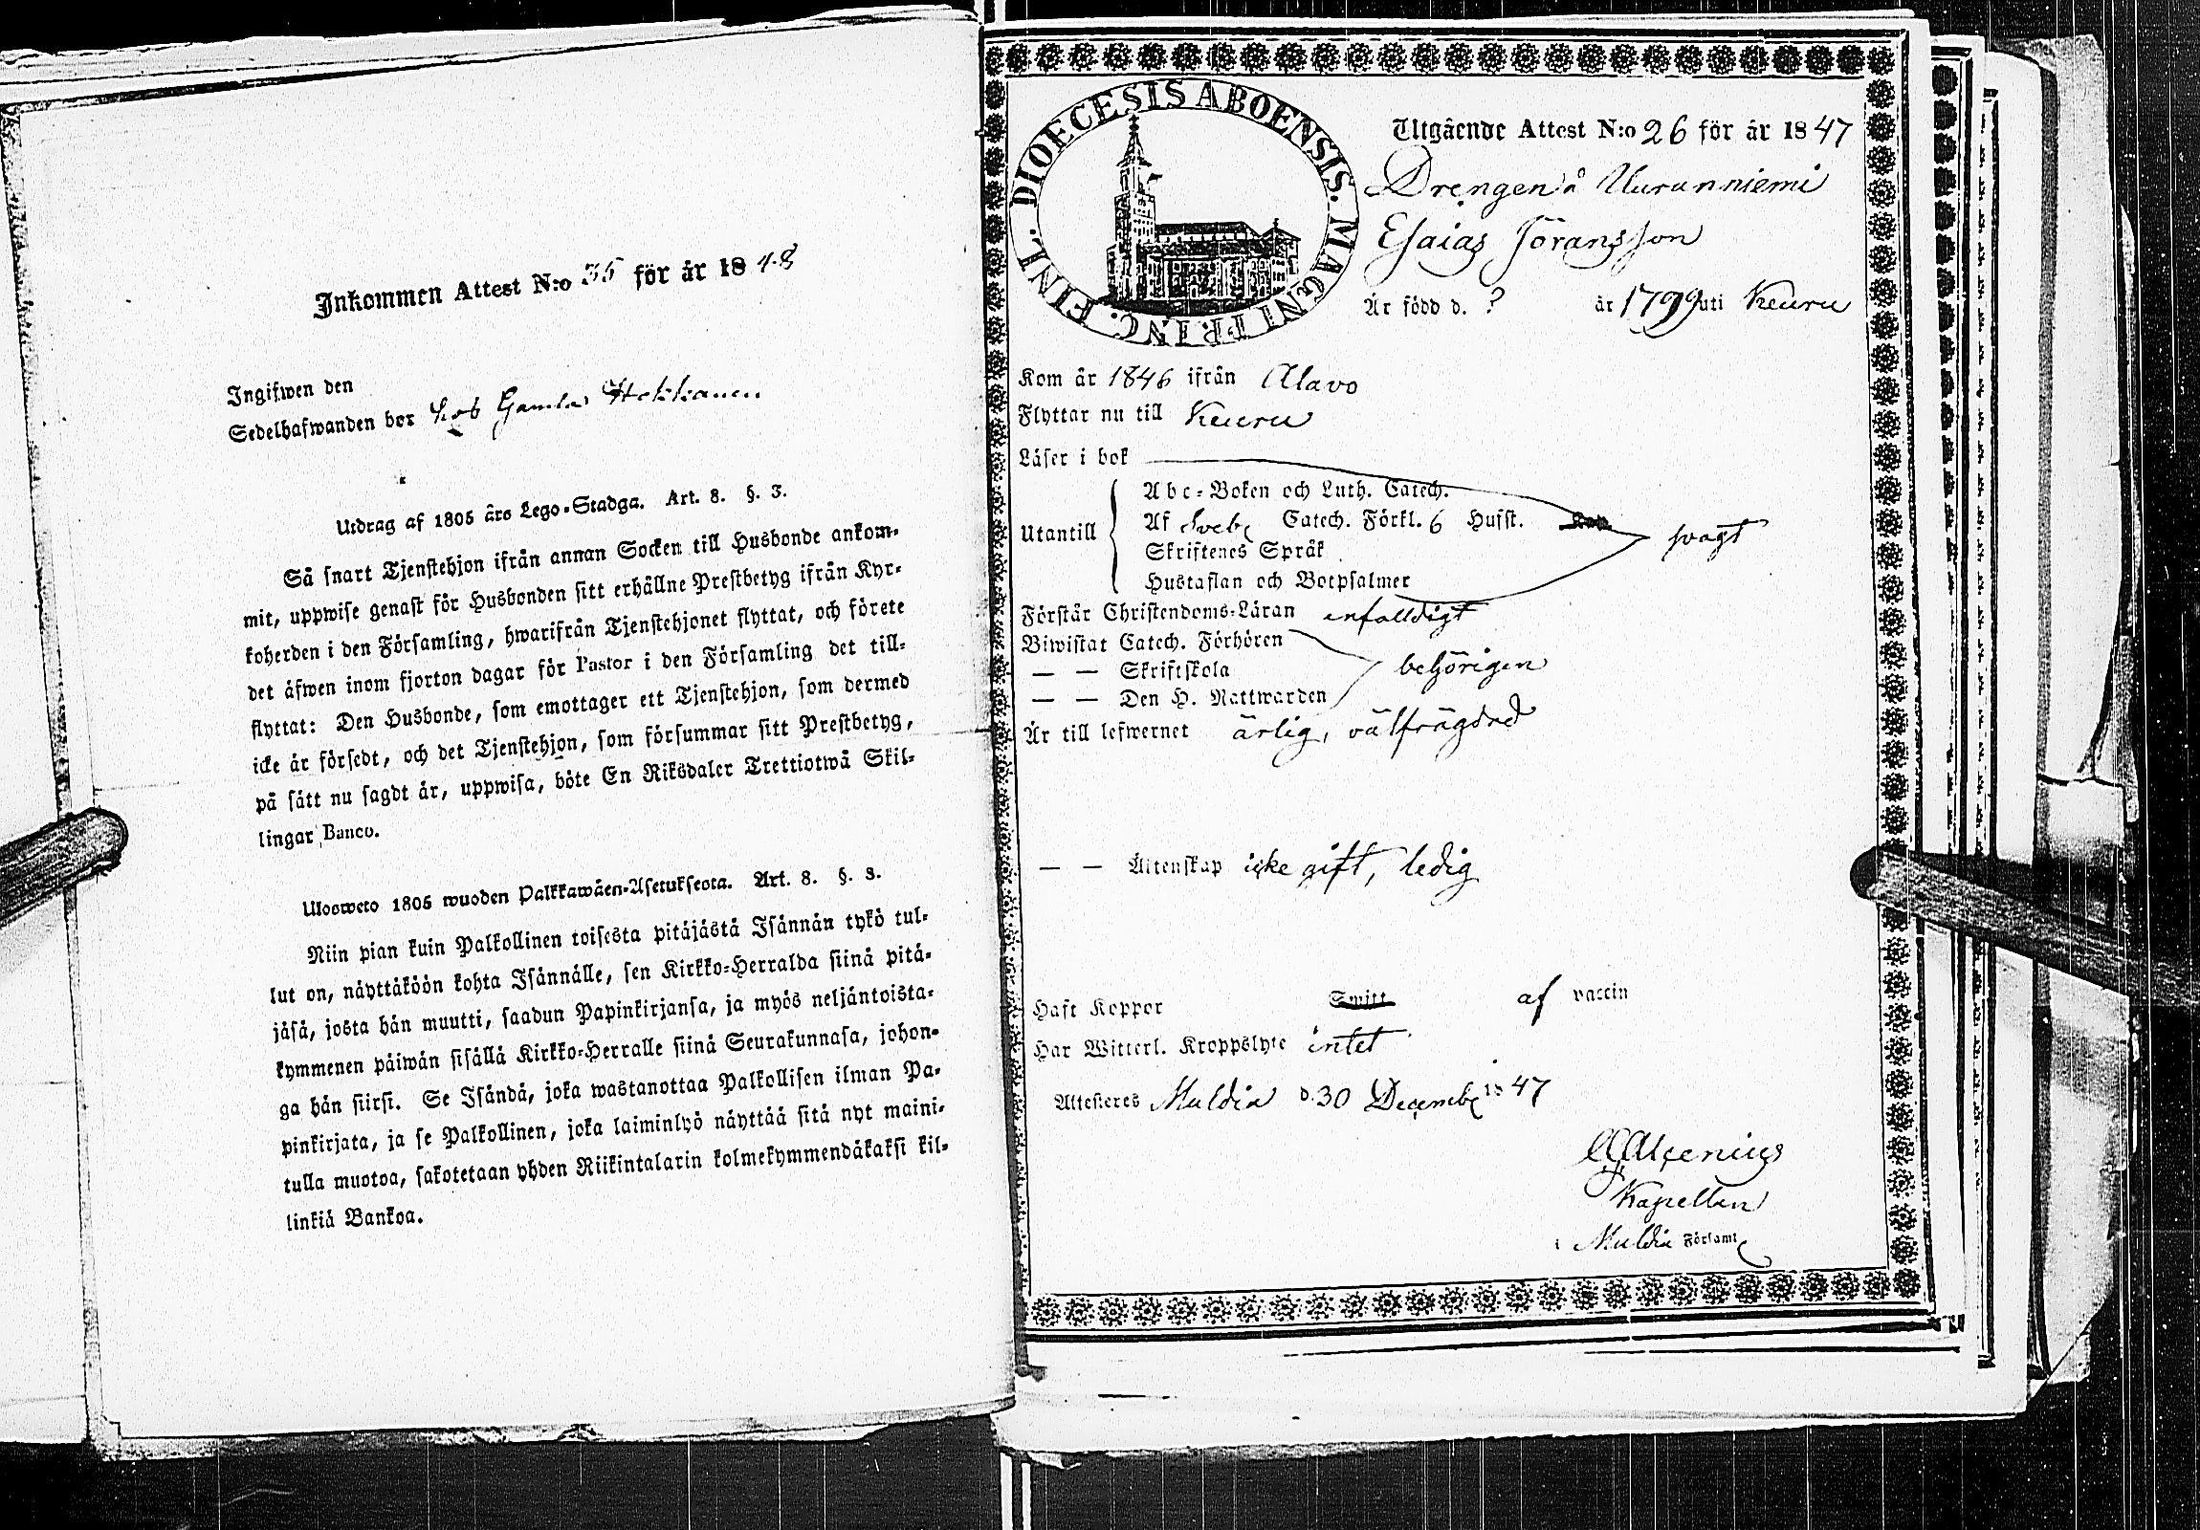 Inkommen Attest N:o 35 för år 1848
Ingifwen den
Sedelhafwanden bor hos Gamla Hokkanen
Utdrag af 1805 års Lego-Stadga. Art. 8. §. 3.
Så snart Tjenstehjon ifrån annan Socken till Husbonde ankom-
mit, uppwise genast för Husbonden sitt erhållne Prestbetyg ifrån Kyr-
koherden i den Församling, hwarifrån Tjenstehjonet flyttat, och förete
det äfwen inom fjorton dagar för Pastor i den Församling det till-
flyttat: Den Husbonde, som emottager ett Tjenstehjon, som dermed
icke är försedt, och det Tjenstehjon, som försummar sitt Prestbetyg,
på sätt nu sagdt är, uppwisa, böte En Riksdaler Trettiotwå Skil-
lingar Banco.
Ulosweto 1805 wuoden Palkkawäen-Asetuksesta. Art. 8. §. 3.
Niin pian kuin Palkollinen toisesta pitäjästä Isännän tykö tul-
lut on, näyttäköön kohta Isännälle, sen Kirkko-Herralda siinä pitä-
jäsä, josta hän muutti, saadun Papinkirjansa, ja myös neljäntoista-
kymmenen päiwän sisällä Kirkko-Herralle siinä Seurakunnasa, johon-
ga hän siirsi. Se Isändä, joka wastanottaa Palkollisen ilman Pa-
pinkirjata, ja se Palkollinen, joka laiminlyö näyttää sitä nyt maini-
tulla muotoa, sakotetaan yhden Riikintalarin kolmekymmendäkaksi kil-
linkiä Bankoa.
DIOECESIS ABOENSIS. MAGNI PRINC. FINL.
Utgående Attest N:o 26 för år 1847
Drengen å Uuranniemi
Esaias Göransson
Är född d. ? år 1799 uti Keuru
Kom år 1846 ifrån Alavo
Flyttar nu till Keuru
Läser i bok
Abc-Boken och Luth. Catech.
Utantill Af Sveb. Catech. Förkl. 6 Hufst. svagt
Skriftenes Språk
Hustaflan och Botpsalmer
Förstår Christendoms-Läran enfalldigt
Biwistat Catech. Förhören
— — Skriftskola behörigen
— — Den H. Nattwarden
Är till lefwernet ärlig, välfrägdad
— — Äktenskap icke gift, ledig
Haft Koppor Smitt af vaccin
Har Witterl. Kroppslyte intet
Attesteres Muldia d. 30 Decemb. 1847
Kapellan
i Muldia Församl.